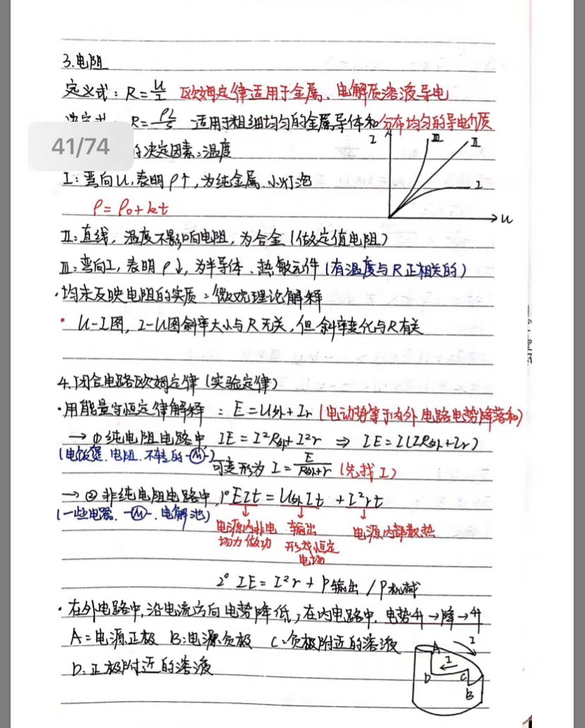 3.电阻
定义式：R=U/I 欧姆定律适用于金属、电解质溶液导电
R=ρL/S 适用于粗细均匀的金属导体和分布均匀的导电介质
41/74
的决定因素：温度
I：弯向U，表明ρ↑，为纯金属、小灯泡
ρ=ρ0+kt
I
III
II
I
U
II：直线，温度不影响电阻，为合金(做定值电阻)
III：弯向I，表明ρ↓，为半导体、热敏元件(有温度与R正相关的)
·均未反映电阻的实质：微观理论解释
·U-I图，I-U图斜率大小与R无关，但斜率变化与R有关
4.闭合电路欧姆定律(实验定律)
·用能量守恒定律解释：E=U外+Ir(电动势等于内外电路电势降落和)
→①纯电阻电路中，IE=I²R外+I²r ⇒ IE=I(IR外+Ir)
(电饭煲、电阻、不转的-M-) 可变形为I=E/R外+r (先找I)
→②非纯电阻电路中，1°EIt=U外It+I²rt
(一些电器、-M-、电解池)
电源内非电场力做功 输出 形成恒定电场 电源内部散热
2° IE=I²r+P输出/P机械
·在外电路中，沿电流方向电势降低，在内电路中，电势升→降→升
A：电源正极 B：电源负极 C：负极附近的溶液
D：正极附近的溶液
A
I
D
I
C
B